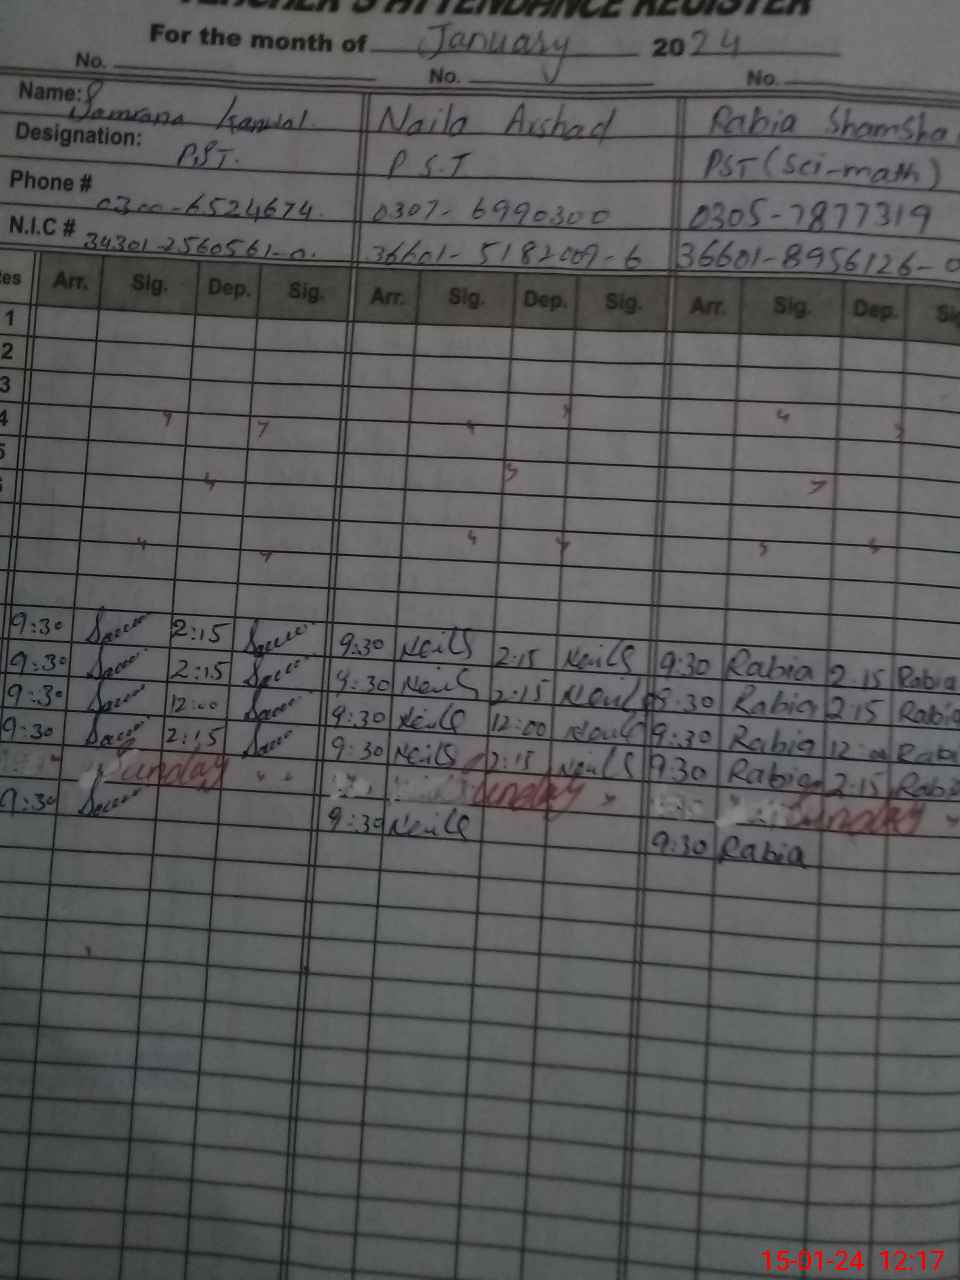 TEACHER'S ATTENDANCE REGISTER
For the month of January 2024
No. No. No.
Name: Kanwal Naila Arshad Rabia Shamsha
Designation: P.S.T. P.S.T PST (Sci-math)
Phone # 0300-6524674 0307-6990300 0305-7877319
N.I.C # 34301-2560561-0. 36601-5182009-6 36601-8956126-0
tes Arr. Sig. Dep. Sig. Arr. Sig. Dep. Sig. Arr. Sig. Dep. Sig
1
2
3
4
5
9:30 2:15 9:30 Neils 2:15 Neils 9:30 Rabia 2:15 Rabia
9:30 2:15 9:30 2:15 8:30 Rabia 2:15 Rabia
9:30 12:00 9:30 12:00 9:30 Rabia 12:00 Rabi
9:30 2:15 9:30 Neils 2:15 9:30 Rabia 2:15 Rabi
Sunday Sunday Sunday
9:30 9:30 Neils 9:30 Rabia
15-01-24 12:17